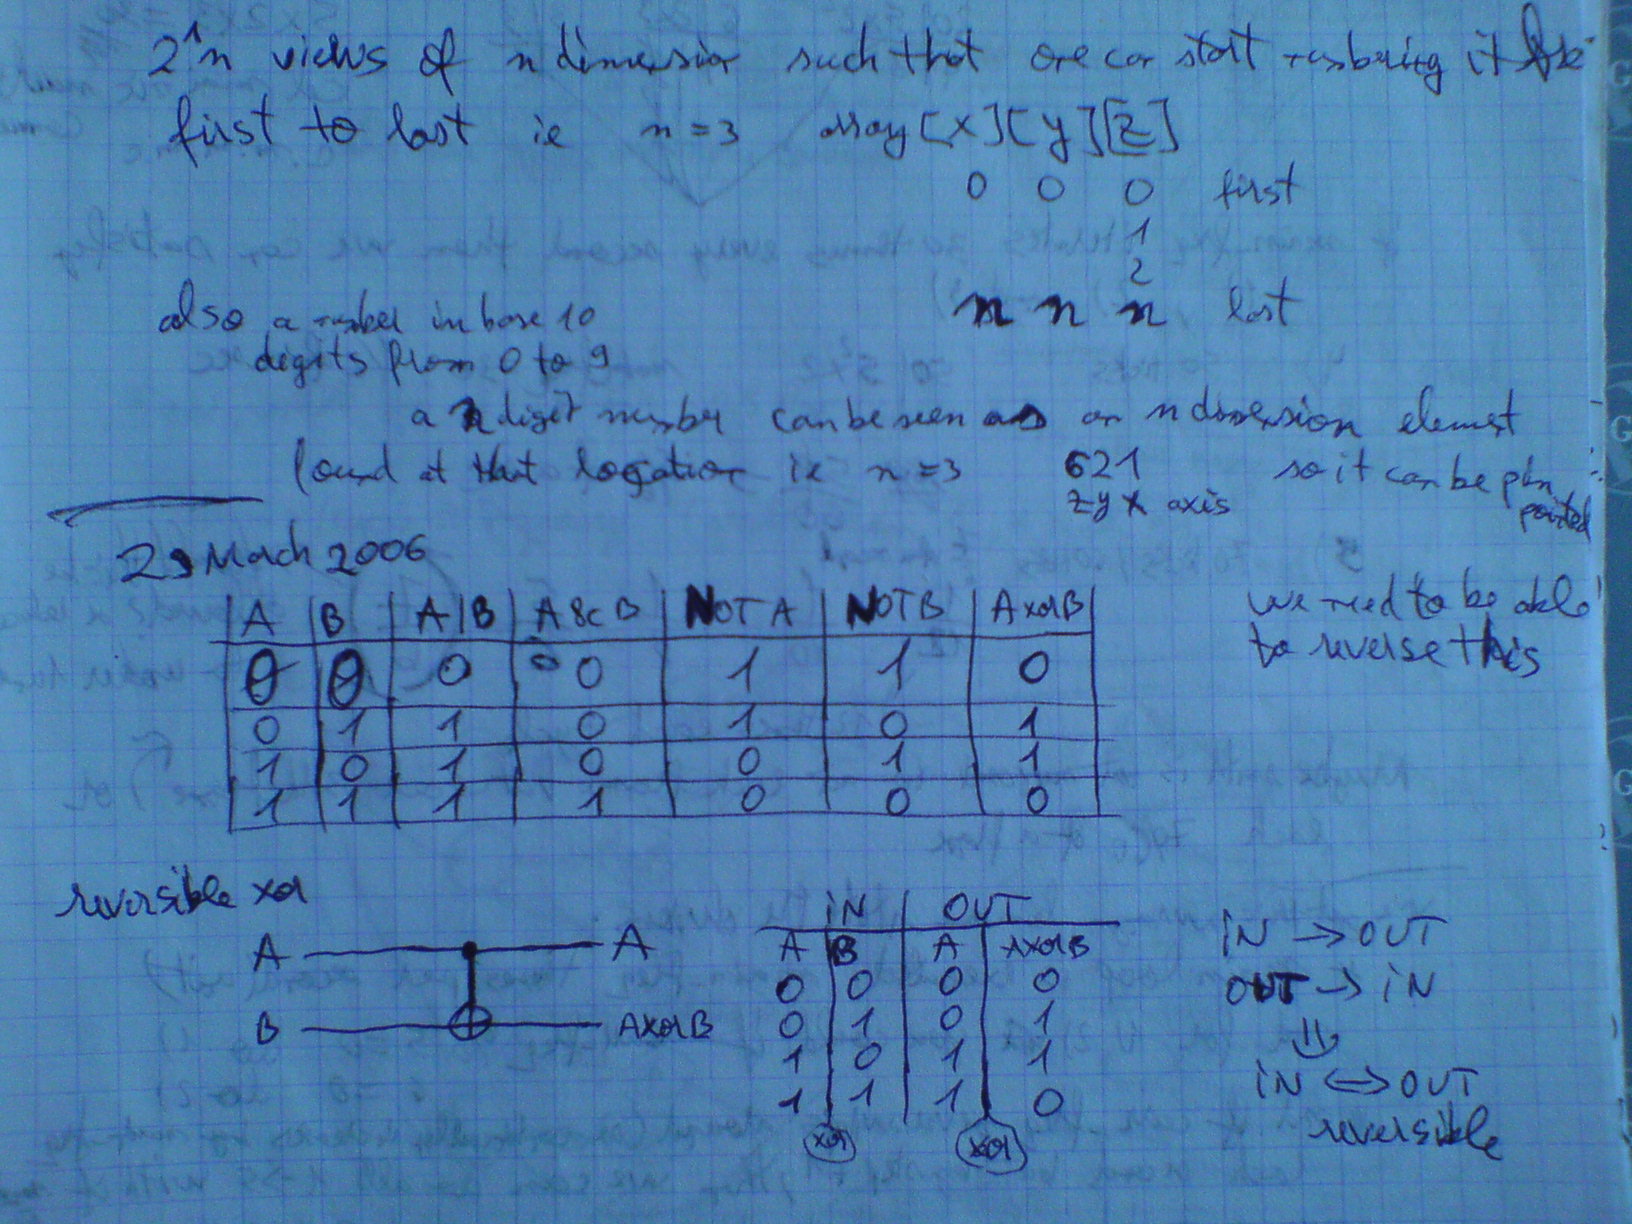 2^n views of n dimension such that one can start numbering it
first to last ie n=3 array[x][y][z]
0 0 0 first
1
2
n n n last
also a number in base 10
digits from 0 to 9
a n digit number can be seen as an n dimension element
found at that location ie n=3 621 so it can be pin
zyx axis pointed
29 March 2006
A B A|B A&B NOT A NOT B A xor B
0 0 0 0 1 1 0
0 1 1 0 1 0 1
1 0 1 0 0 1 1
1 1 1 1 0 0 0
we need to be able
to reverse this
reversible xor
A A
B AxorB
IN OUT
A B A AxorB
0 0 0 0
0 1 0 1
1 0 1 1
1 1 1 0
xor xor
IN → OUT
OUT → IN
⇓
IN ↔ OUT
reversible